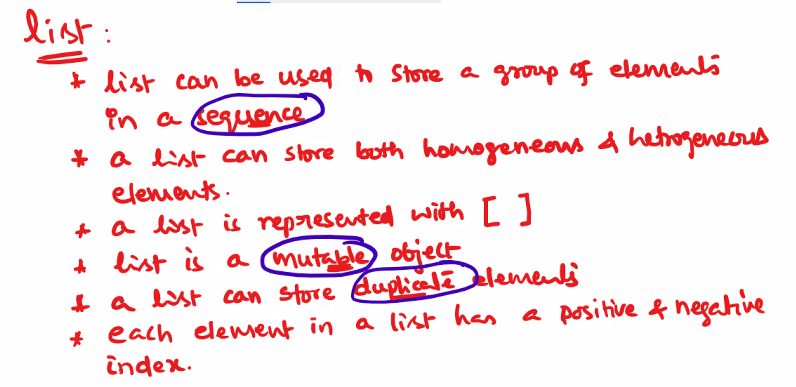 list :
* list can be used to store a group of elements
in a sequence
* a list can store both homogeneous & hetrogeneous
elements.
* a list is represented with [ ]
* list is a mutable object
* a list can store duplicate elements
* each element in a list has a positive & negative
index.